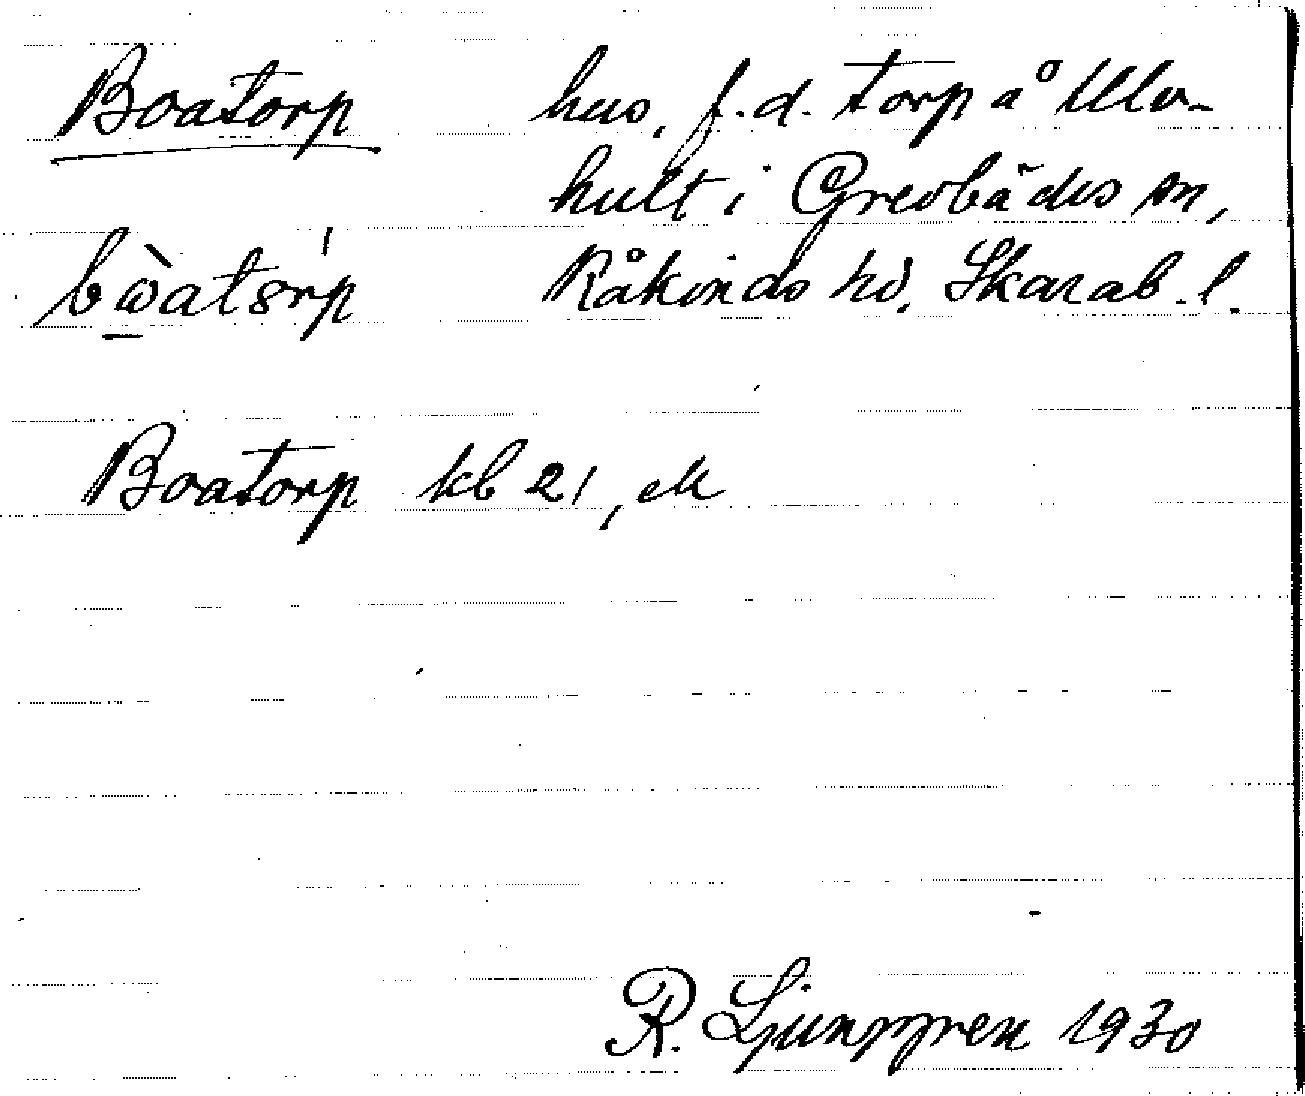 Boatorp hus, f.d. torp å Ulv-
hult i Grevbäcks sn,
bẁatsŕp Kåkinds hd, Skarab. l.
Boatorp kb 21, ek
R. Ljunggren 1930